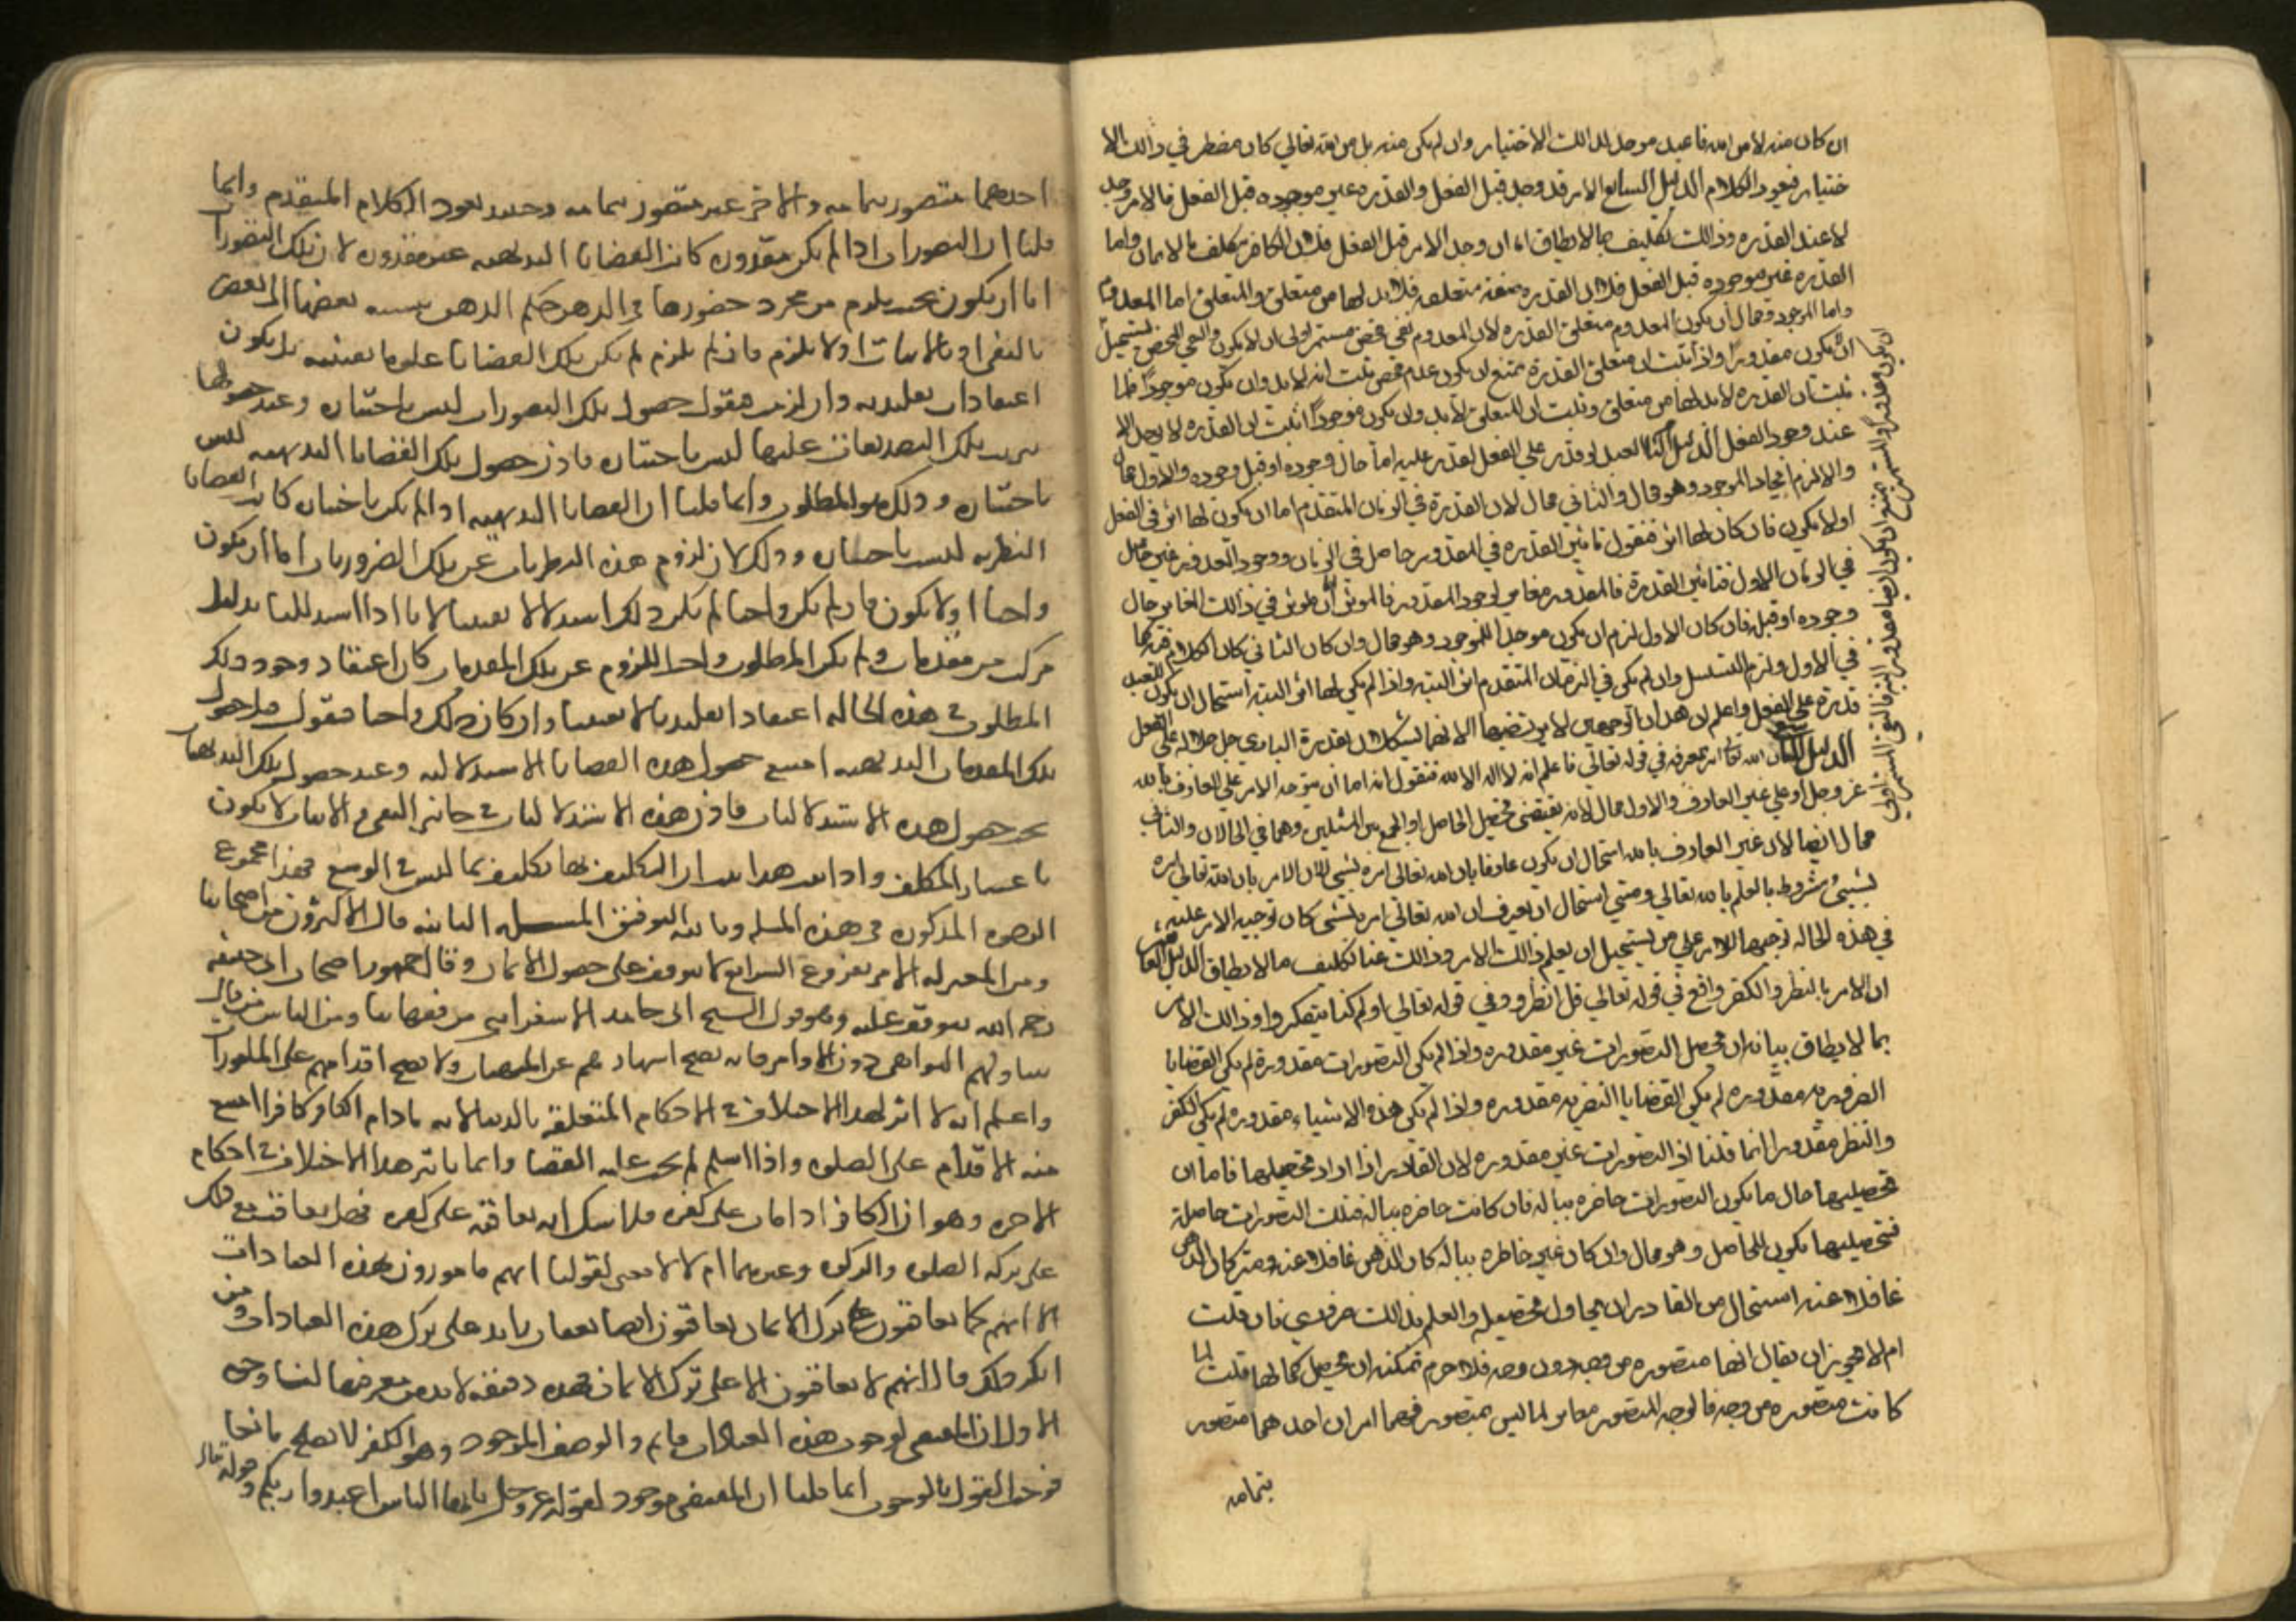 ان كان منه لا من الله فالعبد موجد لذالك الاختيار وان لم يكن منه بل من الله تعالى كان مضطر في ذالك الا
ختيار فيعود الكلام الدليل السابع الامر قد وجد قبل الفعل والقدره غير موجوده قبل الفعل فالامر وجد
لا عند القدره وذالك تكليف بما لا يطاق اما ان وجد الامر قبل الفعل فلان الكافر مكلف بالايمان واما
القدره غير موجوده قبل الفعل فلان القدره صفة متعلقه فلا بد لها من متعلق والمتعلق اما المعدوم
واما الموجود ومحال ان يكون المعدوم متعلق القدره لان المعدوم نفي محض مستمر والنفي المحض يستحيل
ان يكون مقدورا واذا ثبت ان متعلق القدرة يمتنع ان يكون عدم محض ثبت انه لا بد وان يكون موجودًا فلما
ثبت ان القدره لا بد لها من متعلق وثبت ان المتعلق لا بد وان يكون موجودًا ثبت ان القدره لا توجد الا
عند وجود الفعل الدليل الثامن العبد لو قدر على الفعل لقدر عليه اما حال وجوده او قبل وجوده والاول محال
والا لزم ايجاد الموجود وهو محال والثاني محال لان القدرة في الزمان المتقدم اما ان يكون لها اثر في الفعل
اولا يكون فان كان لها اثر فنقول تاثير القدره في المقدور حاصل في الزمان ووجود المقدور غير حاصل
في الزمان الاول فتاثير القدرة في المقدور مغاير لوجود المقدور فالموثر اما ان يوثر في ذالك المغاير حال
وجوده او قبله فان كان الاول لزم ان يكون موجدا للموجود وهو محال وان كان الثاني كان الكلام فيه كما
في الاول ولزم التسلسل وان لم يكن في الزمان المتقدم اثر البتة واذا لم يكن لها اثر البتة استحال ان يكون للعبد
قدرة على الفعل واعلم ان هذان الوجهين لا نرتضيهما لانهما يشكلان بقدرة الباري جل جلاله على الفعل
الدليل التاسع ان الله تعالى امر بمعرفته في قوله تعالى فاعلم انه لا اله الا الله فنقول انه اما ان يتوجه الامر على العارف بالله
عز وجل او على غير العارف والاول محال لانه يقتضي تحصيل الحاصل او الجمع بين المثلين وهما في الحالان والثاني
محال ايضا لان غير العارف بالله استحال ان يكون عارفا بان الله تعالى امره بشي لان الامر بان الله تعالى امره
بشيئ مشروط بالعلم بالله تعالى ومتى استحال ان يعرف ان الله تعالى امره بشى كان توجيه الامر عليه
في هذه الحاله توجيها للامر على من يستحيل ان يعلم ذالك الامر وذالك عنا تكليف ما لا يطاق الدليل العاشر
ان الامر بالنظر والفكر واقع في قوله تعالى قل انظروا وفي قوله تعالى اولم يتفكروا وذالك الامر
بما لا يطاق بيانه ان تحصيل التصورات غير مقدوره واذا لم يكن التصورات مقدورة لم يكن القضايا
الضروريه مقدوره لم يكن القضايا النظريه مقدوره واذا لم يكن هذه الاشياء مقدوره لم يكن الفكر
والنظر مقدورا انما قلنا ان التصورات غير مقدوره لان القادر اذا اراد تحصيلها فاما ان
تحصيلها حال ما يكون التصورات حاضره بباله فان كانت حاضره بباله فتلك التصورات حاصلة
فتحصيلها يكون للحاصل وهو محال وان كان غير خاطره بباله كان الذهن غافلا عنه ومتى كان الذهن
غافلا عنه استحال من القادر ان يحاول تحصيله والعلم بذالك ضروري فان قلت
ام لا يجوز ان يقال انها متصوره من وجه دون وجه فلا جرم يمكنه ان يحصل كمالها قلت لما
كانت متصوره من وجه فالوجه المتصور مغاير لما ليس متصور فهما امران احدهما متصور
بتمامه
احدهما متصور بتمامه والاخر غير متصور بتمامه وحينئذ يعود الكلام المتقدم وانما
قلنا ان التصورات اذا لم يكن مقدوره كانت القضايا البديهيه غير مقدوره لان تلك التصورات
اما ان يكون بحيث يلزم من مجرد حضورها في الذهن حكم الذهن بنسبه بعضها الى بعض
بالنفي او بالاثبات اولا يلزم فان لم يلزم لم يكن تلك القضايا علوما يقينيه بل يكون
اعتقادات تقليديه وان لزمت فنقول حصول تلك التصورات ليس باختياره وعند حصولها
ترتب تلك التصديقات عليها ليس باختياره فاذن حصول تلك القضايا البديهيه ليس
باختياره وذلك هو المطلوب وانما قلنا ان القضايا البديهيه اذا لم يكن باختياره كانت القضايا
النظريه ليست باختياره وذلك لان لزوم هذه النظريات عن تلك الضروريات اما ان يكون
واجبا اولا يكون فان لم يكن واجبا لم يكن ذلك استدلالا يقينيا لانا اذا استدللنا بدليل
مركب من مقدمات ولم يكن المطلوب واجب اللزوم عن تلك المقدمات كان اعتقاد وجود ذلك
المطلوب في هذه الحاله اعتقادا تقليديا لا يقينيا وان كان ذلك واجبا فنقول قبل حصول
تلك المقدمات البديهيه امتنع حصول هذه القضايا الاستدلاليه وعند حصول تلك البديهيات
يجب حصول هذه الاستدلاليات فاذن هذه الاستدلاليات في جانبي النفي والاثبات لا يكون
باختيار المكلف واذا ثبت هذا ثبت ان التكليف بها تكليف بما ليس في الوسع فهذا مجموع
الوجوه المذكوره في هذه المسله وبالله التوفيق المسله الثانيه قال الاكثرون من اصحابنا
ومن المعتزله الامر بفروع الشرايع لا يتوقف على حصول الايمان وقال جمهور اصحاب ابي حنيفه
رحمه الله يتوقف عليه وهو قول الشيخ ابي حامد الاسفرايني من فقهائنا ومن الناس من قال
يتناولهم النواهي دون الاوامر فانه يصح انتهاؤهم عن المنهيات ولا يصح اقدامهم على المامورات
واعلم انه لا اثر لهذا الاختلاف في الاحكام المتعلقه بالدنيا لانه ما دام الكافر كافرا امتنع
منه الاقدام على الصلوه واذا اسلم لم يجب عليه القضا وانما تاثير هذا الاختلاف في احكام
الاخره وهو ان الكافر اذا مات على كفره فلا شك انه يعاقبه على كفره فهل يعاقب مع ذلك
على تركه الصلوه والزكوه وغيرهما ام لا لا معنى لقولنا انهم مامورون بهذه العبادات
الا انهم كما يعاقبون على ترك الايمان يعاقبون ايضا بعقاب زايد على ترك هذه العبادات ومن
انكر ذلك قال انهم لا يعاقبون الا على ترك الايمان فهذه دقيقه لا بد من معرفتها لنا وجوه
الاول ان المقتضي لوجوب هذه العبادات قايم والوصف الموجود وهو الكفر لا يصلح مانعا
فوجب القول بالوجوب انما قلنا ان المقتضي موجود لقوله عز وجل يايها الناس اعبدوا ربكم وقوله تعالى